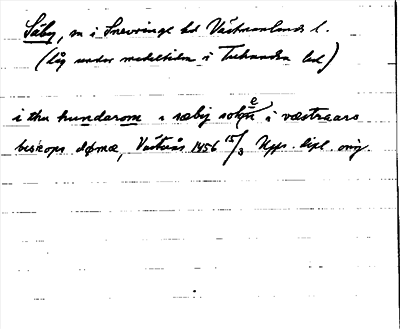 Säby, sn i Snevringe hd Västmanlands l.
(låg under medeltiden i Tuhundra hd)
i thu hundarom i sæby sokne i væstraars
biscops døme, Västerås 1456 15/3 Upps. dipl. orig.